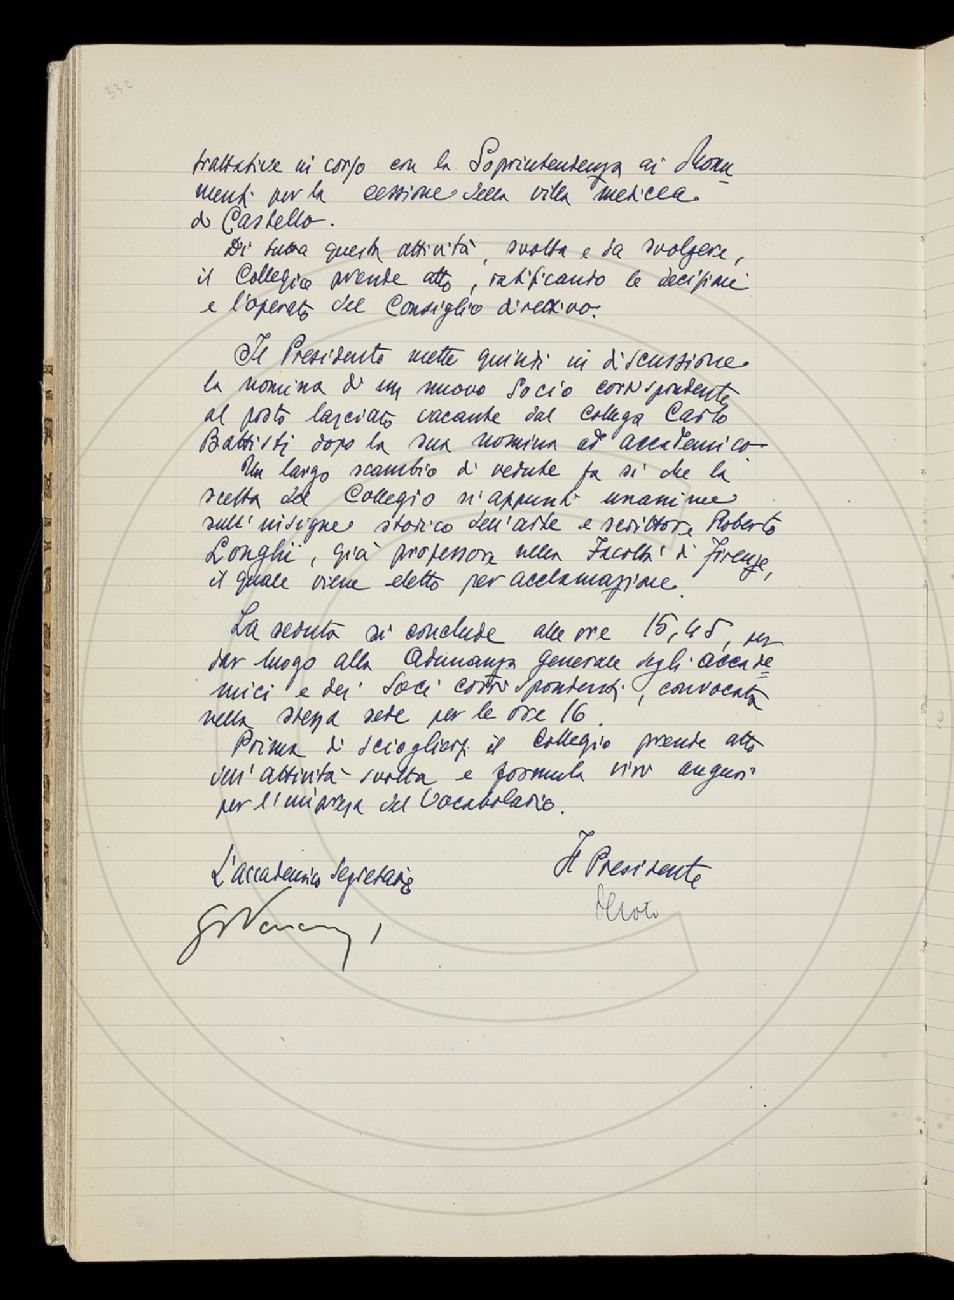 332
trattative in corso con la Soprintendenza ai Monu=
menti per la cessione della villa medicea
di Castello.
Di tutta questa attività, svolta e da svolgere,
il Collegio prende atto, ratificando le decisioni
e l'operato del Consiglio direttivo.
Il Presidente mette quindi in discussione
la nomina di un nuovo Socio corrispondente
al posto lasciato vacante dal collega Carlo
Battisti dopo la sua nomina ad accademico.
Un largo scambio di vedute fa sì che la
scelta del Collegio s'appunti unanime
sull'insigne storico dell'arte e scrittore Roberto
Longhi, già professore nella Facoltà di Firenze,
il quale viene eletto per acclamazione.
La seduta si conclude alle ore 15,45, per
dar luogo alla Adunanza generale degli accade=
mici e dei Soci corrispondenti, convocata
nella stessa sede per le ore 16.
Prima di sciogliersi il Collegio prende atto
dell'attività svolta e formula vivi auguri
per l'impresa del Vocabolario.
L'accademico Segretario
Il Presidente